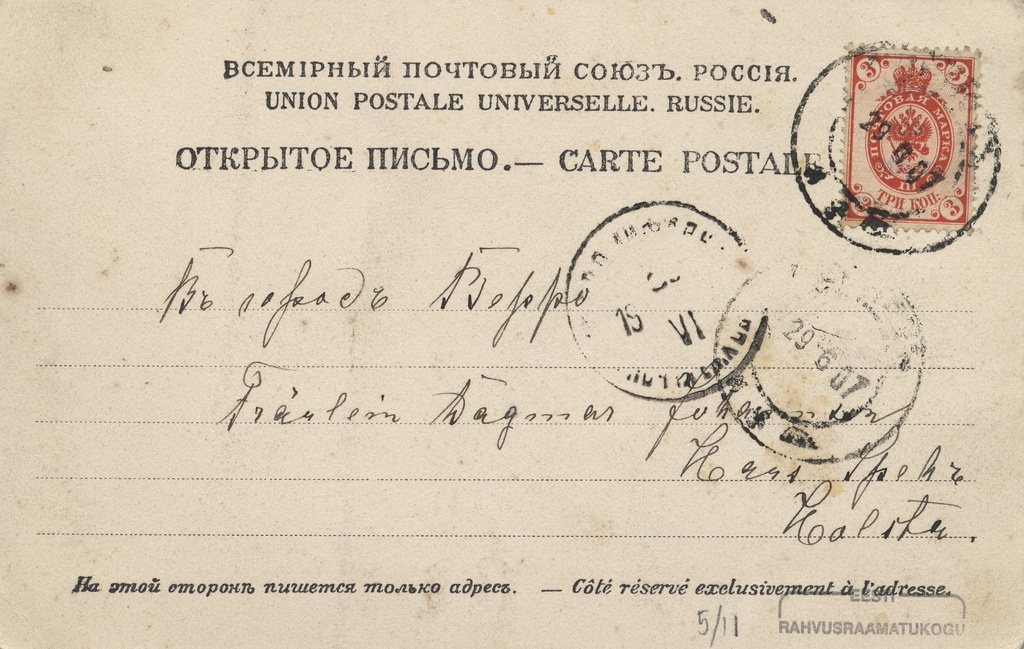 ВСЕМІРНЫЙ ПОЧТОВЫЙ СОЮЗЪ. РОССІЯ.
UNION POSTALE UNIVERSELLE. RUSSIE.
ОТКРЫТОЕ ПИСЬМО.— CARTE POSTALE
3 3
ПОЧТОВАЯ МАРКА
29 6 07
ТРИ КОП.
3 3
Въ городъ Верро
19 VI
29 6 07
Fräulein Dagmar Johannson
Haus Spek
Holsta.
На этой сторонѣ пишется только адресъ. — Côté réservé exclusivement à l'adresse.
5/11
EESTI
RAHVUSRAAMATUKOGU